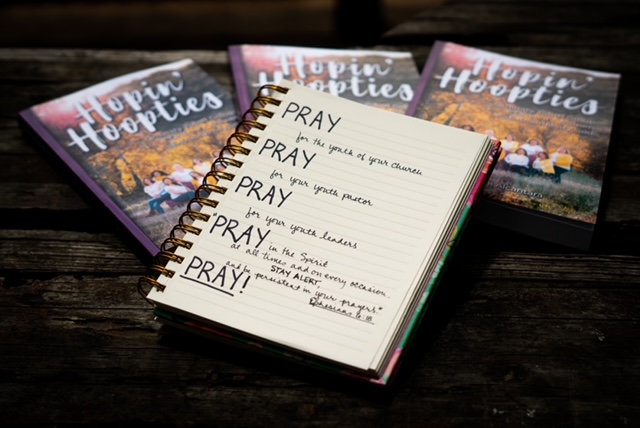 Hopin'
Hoopties
Hopin'
Hoopties
Hopin'
Hoopties
PRAY
for the youth of your church
PRAY
for your youth pastor
PRAY
for your youth leaders
"PRAY in the Spirit
at all times and on every occasion.
STAY ALERT
and be persistent in your prayers."
Ephesians 6:18
PRAY!